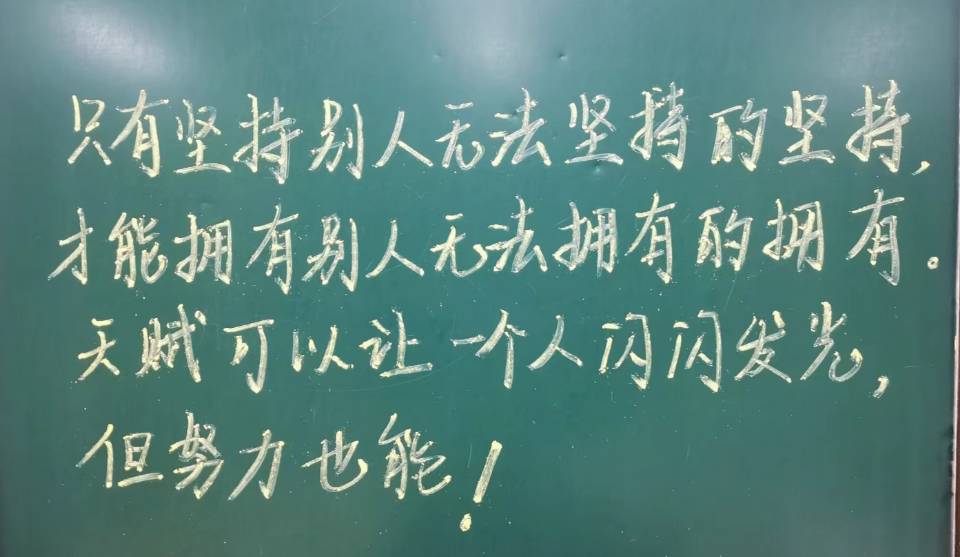 只有坚持别人无法坚持的坚持,
才能拥有别人无法拥有的拥有。
天赋可以让一个人闪闪发光,
但努力也能!